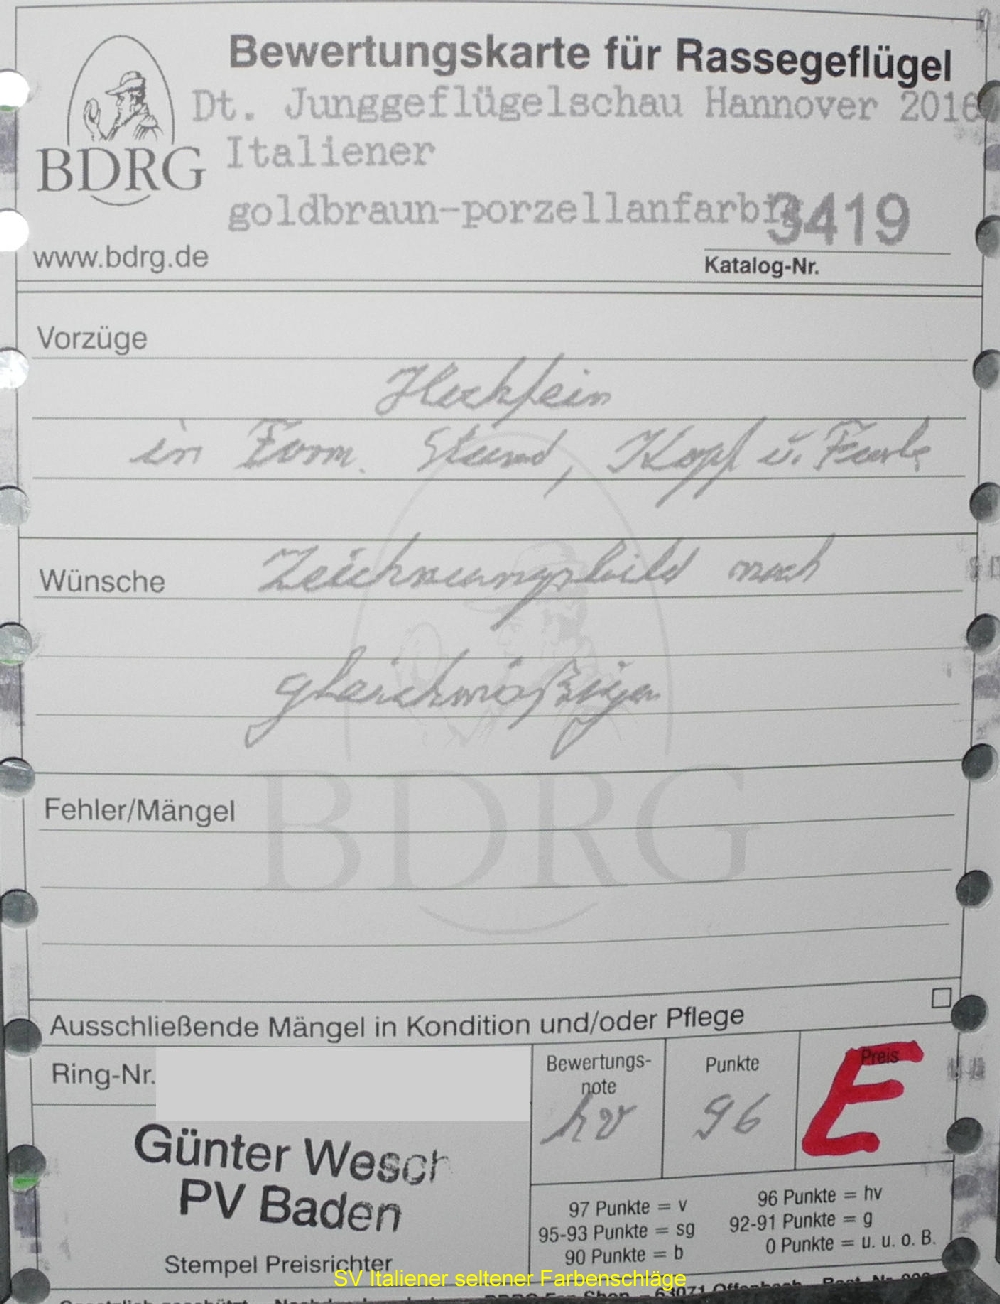 Bewertungskarte für Rassegeflügel
Dt. Junggeflügelschau Hannover 2016
BDRG
Italiener
goldbraun-porzellanfarbig
3419
www.bdrg.de
Katalog-Nr.
Vorzüge
Hochfein
in Form. Stand, Kopf u. Farbe
Wünsche
Zeichnungsbild noch
gleichmäßiger
BDRG
Fehler/Mängel
Ausschließende Mängel in Kondition und/oder Pflege
Ring-Nr.
Bewertungs-
note
Punkte
Preis
hv
96
E
Günter Wesch
PV Baden
Stempel Preisrichter
97 Punkte = v
96 Punkte = hv
95-93 Punkte = sg
92-91 Punkte = g
90 Punkte = b
0 Punkte = u. u. o. B.
SV Italiener seltener Farbenschläge
63071 Offenbach